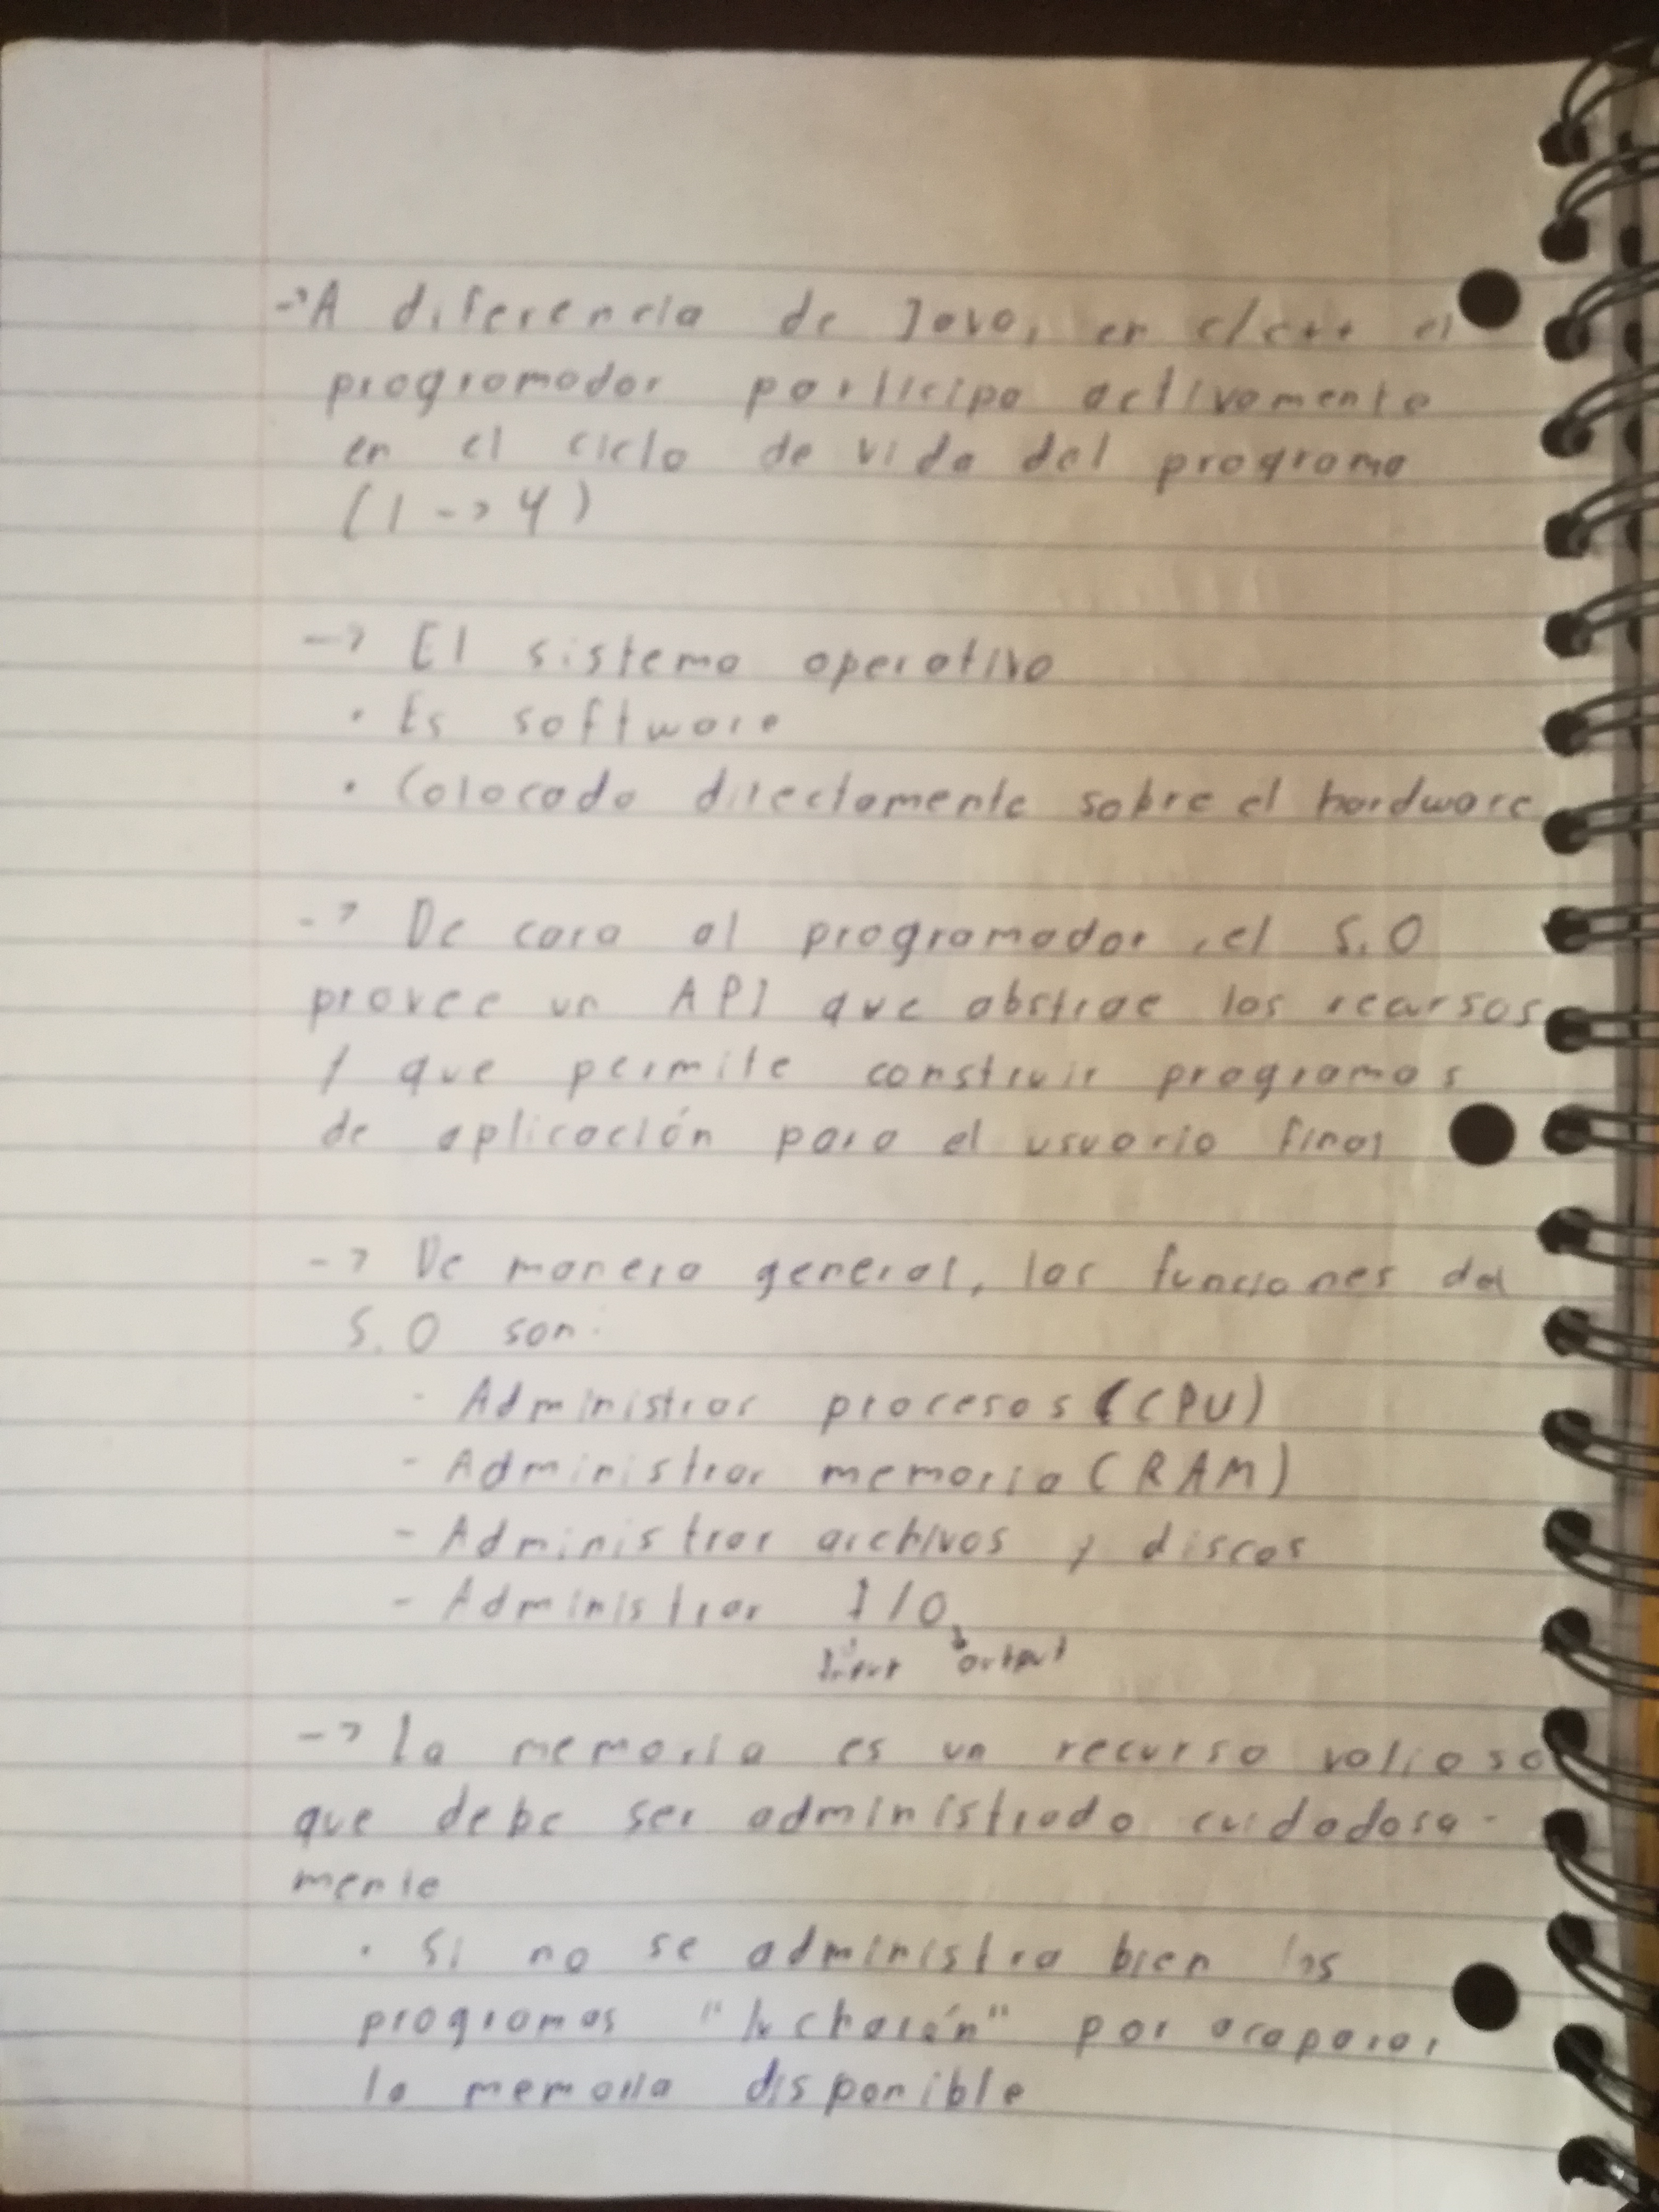 -> A diferencia de Java, en c/c++ el
programador participa activamente
en el ciclo de vida del programa
(1 -> 4)
-> El sistema operativo
• Es software
• Colocado directamente sobre el hardware
-> De cara al programador, el S.O
provee un API que abstrae los recursos
y que permite construir programas
de aplicación para el usuario final
-> De manera general, las funciones del
S.O son:
- Administrar procesos (CPU)
- Administrar memoria (RAM)
- Administrar archivos y discos
- Administrar I/O
Input output
-> La memoria es un recurso valioso
que debe ser administrado cuidadosa-
mente
• Si no se administra bien los
programas "lucharán" por acaparar
la memoria disponible